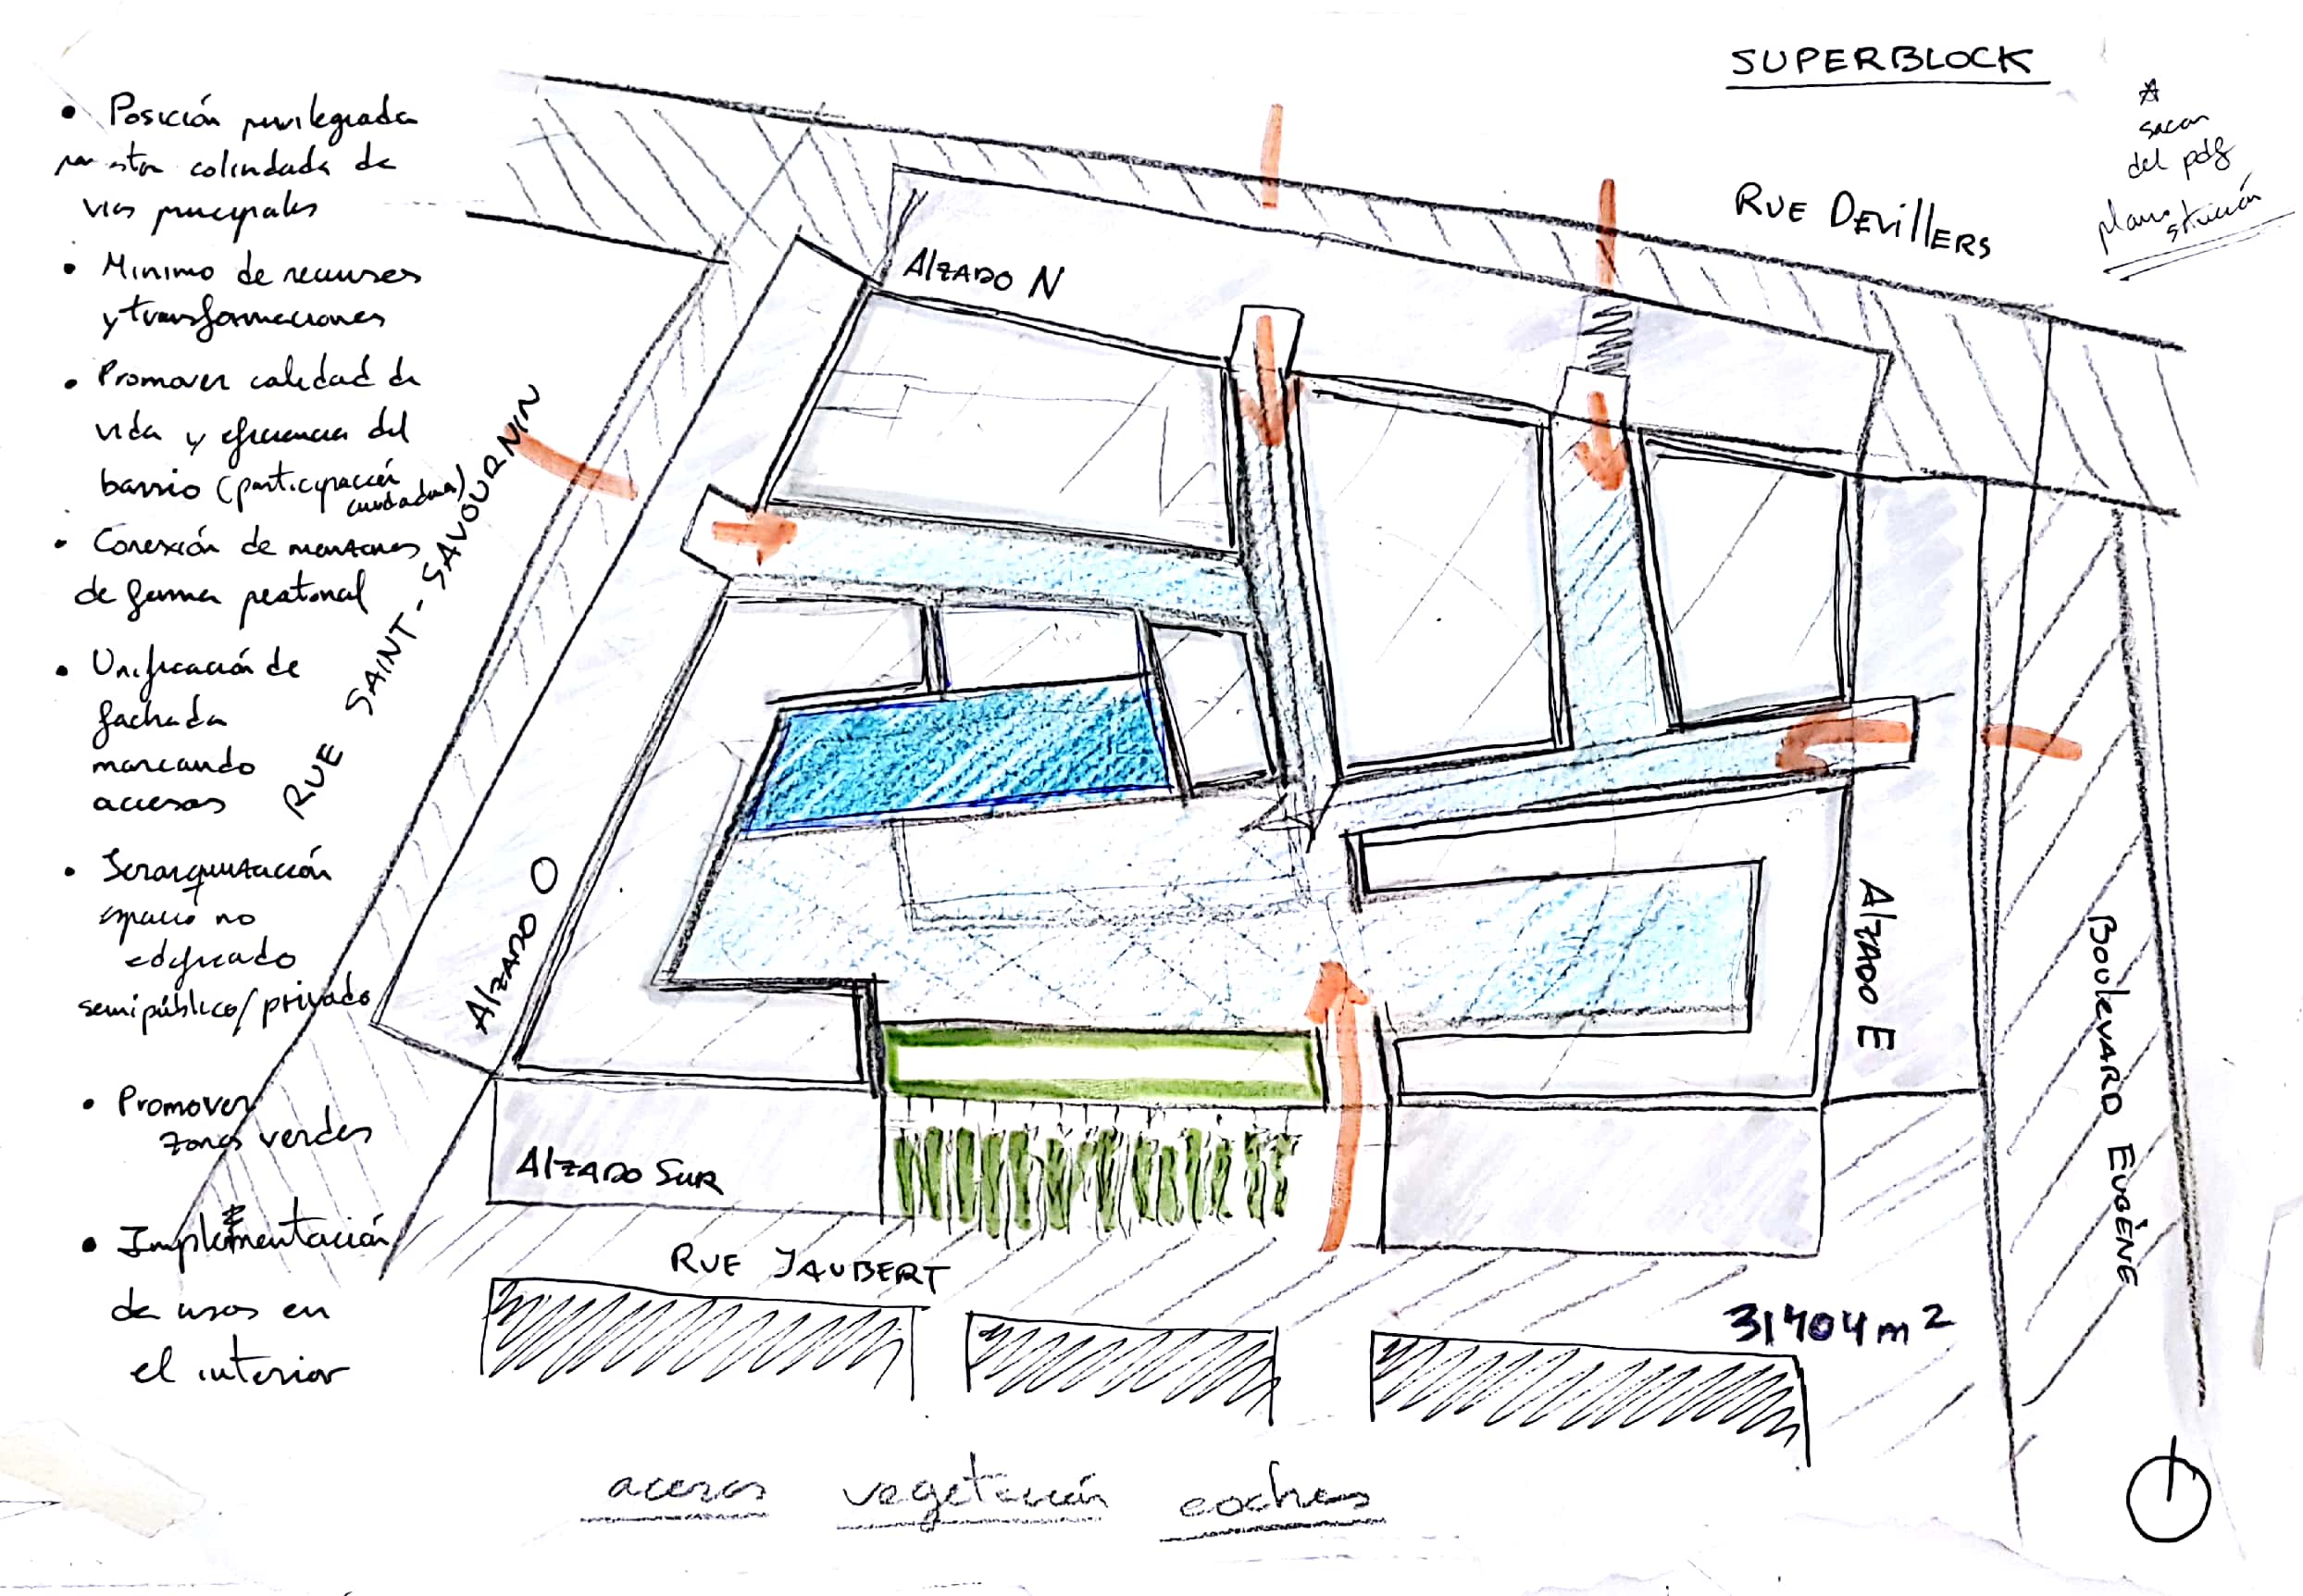 SUPERBLOCK
☆
sacar
del pdf
plano
situación
• Posición privilegiada
por estar colindada de
vias principales
• Minimo de recursos
y transformaciones
• Promover calidad de
vida y eficiencia del
barrio (participación
ciudadana)
• Conexión de manzanas
de forma peatonal
• Unificación de
fachada
marcando
accesos
• Jerarquización
espacio no
edificado
semipúblico/privado
• Promover
zonas verdes
• Implementación
de usos en
el interior
RUE DEVILLERS
Alzado N
RUE SAINT-SAVOURNIN
Alzado O
Alzado E
BOULEVARD EUGÈNE
Alzado Sur
RUE JAUBERT
31404 m²
aceras vegetación coches